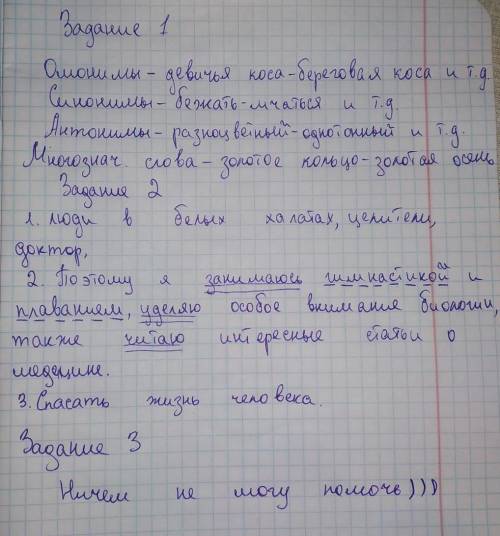 Задание 1
Омонимы - девичья коса - береговая коса и т.д.
Синонимы - бежать - мчаться и т.д.
Антонимы - разноцветный - однотонный и т.д.
Многознач. слова - золотое кольцо - золотая осень
Задание 2
1. люди в белых халатах, целители,
доктор,
2. Поэтому я занимаюсь гимнастикой и
плаванием, уделяю особое внимания биологии,
также читаю интересные статьи о
медецине.
3. Спасать жизнь человека.
Задание 3
Ничем не могу помочь)))